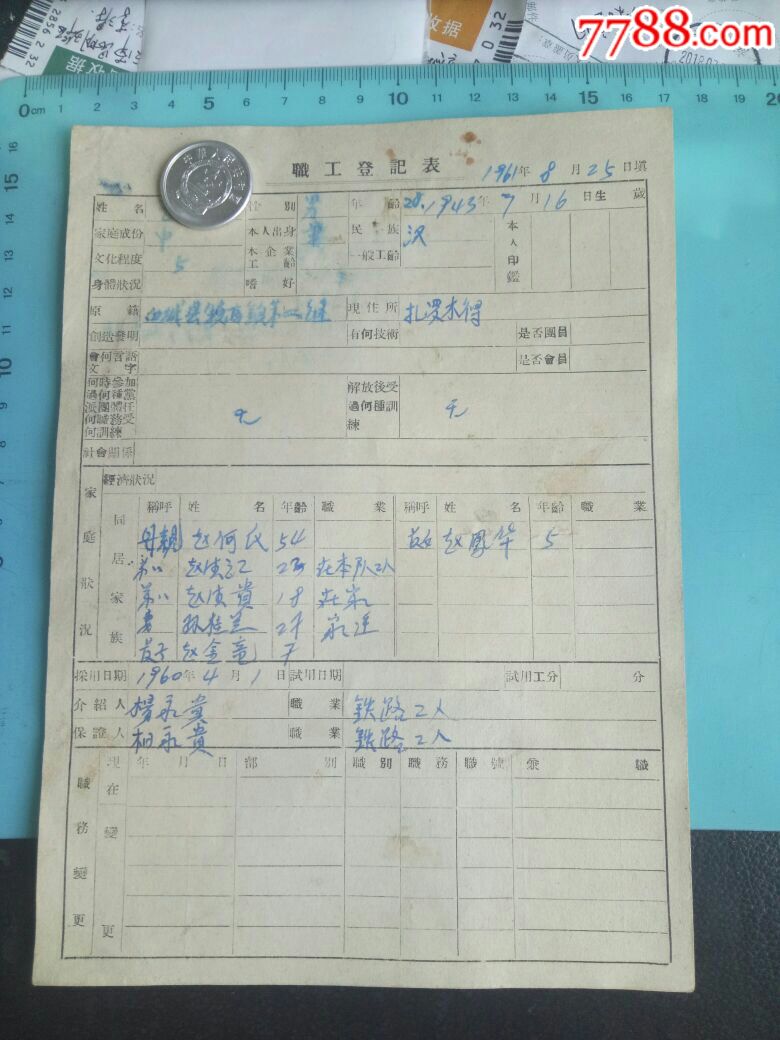 7788.com
收据
收据
0cm 1 2 3 4 5 6 7 8 9 10 11 12 13 14 15 16 17 18 19 20
職工登記表 1961年8月25日填
姓名 性別 男 年齡 28. 1943年7月16日生 歲
家庭成份 中 本人出身 農 民族 汉 本人印鑑
文化程度 5 本企業工齡 一般工齡
身體狀況 嗜好
原籍 現住所 扎罗木得
創造發明 有何技術 是否團員
會何言語文字 是否會員
何時參加過何種黨派團體任何職務受何訓練 无 解放後受過何種訓練 无
社會關係
家庭狀況 經濟狀況
同居家族 稱呼 姓名 年齡 職業 稱呼 姓名 年齡 職業
母親 赵何氏 54 赵鳳华 5
赵 江 23 在本队工人
赵 貴 18 在家
妻 孙桂兰 27
赵金竜 7
採用日期 1960年4月1日 試用日期 試用工分 分
介紹人 楊永貴 職業 鉄路工人
保證人 柏永貴 職業 鉄路工人
職務變更 現在 年月日 部別 職別 職務 職號 兼職
變更